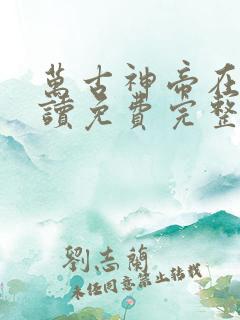 萬古神帝在
讀免費完整
劉志蘭
未經同意禁止轉載